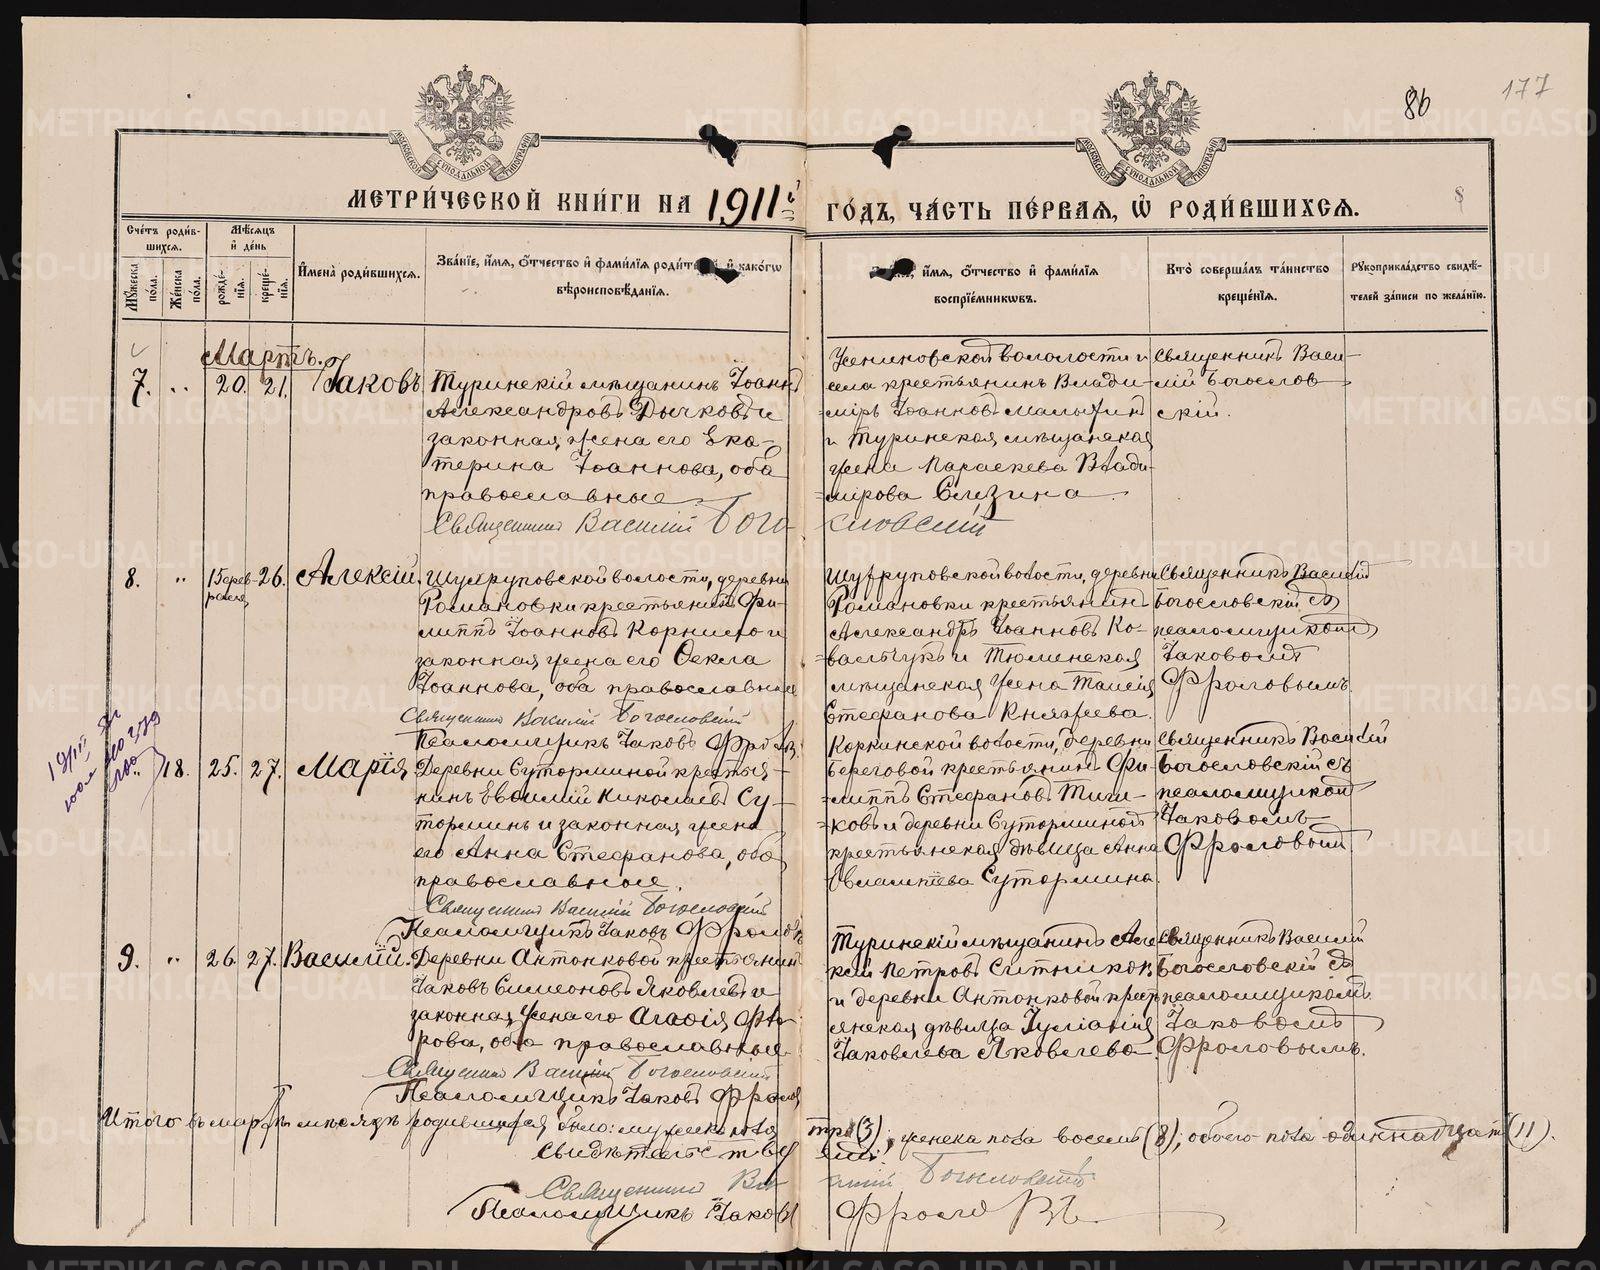 177
86
МОСКОВСКОЙ СѴНОДАЛЬНОЙ ТИПОГРАФІИ
МОСКОВСКОЙ СѴНОДАЛЬНОЙ ТИПОГРАФІИ
МЕТРИ́ЧЕСКОЙ КНИ́ГИ НА 1911й ГО́ДЪ, ЧА́СТЬ ПЕ́РВАЯ, Ѽ РОДИ́ВШИХСЯ.
Сче́тъ роди́в-
шихся.
Мѣ́сяцъ
и҆ де́нь
Мꙋ́жеска
по́ла.
Же́нска
по́ла.
рожде́-
нїѧ.
креще́-
нїѧ.
И҆мена̀ роди́вшихся.
Зва́нїе, и҆́мѧ, ѻ҆́тчество и҆ фами́лїѧ роди́т и҆ како́гѡ
вѣроисповѣ́данїѧ.
и҆́мѧ, ѻ҆́тчество и҆ фами́лїѧ
воспрїе́мникѡвъ.
Кто̀ соверша́лъ та́инство
креще́нїѧ.
Рꙋкоприкла́дство свидѣ́-
телей за́писи по жела́нїю.
Мартъ.
7.
20.
21.
Іаковъ
Туринскій мѣщанинъ Іоаннъ
Александровъ Дычковъ и
законная жена его Ека-
терина Іоаннова, оба
православные
Священникъ Василій Богословскій
Усениновской волости и
села крестьянинъ Влади-
міръ Іоанновъ
и туринская мѣщанская
жена Параскева Влади-
мірова
Священникъ Васи-
лій Богослов-
скій.
8.
15 февраля
26.
Алексій.
волости, деревни
Романовки крестьянинъ Фи-
липпъ Іоанновъ Корнило и
законная жена его Ѳекла
Іоаннова, оба православные
Священникъ Василій Богословскій
Псаломщикъ Іаковъ Фроловъ
волости, деревни
Романовки крестьянинъ
Александръ Іоанновъ Ко-
вальчукъ и Тюменская
мѣщанская жена Таисія
Стефанова Княжева.
Священникъ Василій
Богословскій съ
псаломщикомъ
Іаковомъ
Фроловымъ.
18.
25.
27.
Марія
Деревни Суторминой крестья-
нинъ Евѳимій Николаевъ Су-
торминъ и законная жена
его Анна Стефанова, оба
православные.
Священникъ Василій Богословскій
Псаломщикъ Іаковъ Фроловъ
Коркинской волости, деревни
Береговой крестьянинъ Фи-
липпъ Стефановъ
ковъ и деревни Суторминой
крестьянская дѣвица Анна
Евлампіева Сутормина.
Священникъ Василій
Богословскій съ
псаломщикомъ
Іаковомъ
Фроловымъ
9.
26.
27.
Василій.
Деревни Антонковой крестьянинъ
Іаковъ Симеоновъ Яковлевъ и
законная жена его Агафія
рова, оба православные
Священникъ Василій Богословскій
Псаломщикъ Іаковъ Фроловъ
Туринскій мѣщанинъ Але-
ксій Петровъ Ситников
и деревни Антонковой крест-
янская дѣвица Іуліанія
Іаковлева Яковлева
Священникъ Василій
Богословскій съ
псаломщикомъ
Іаковомъ
Фроловымъ.
Итого въ мартѣ мѣсяцѣ родившихся было: мужеска пола три (3), женска пола восемь (8), обоего пола одиннадцать (11).
Священникъ Василій Богословскій
Псаломщикъ Іаковъ Фроловъ
METRIKI.GASO-URAL.RU